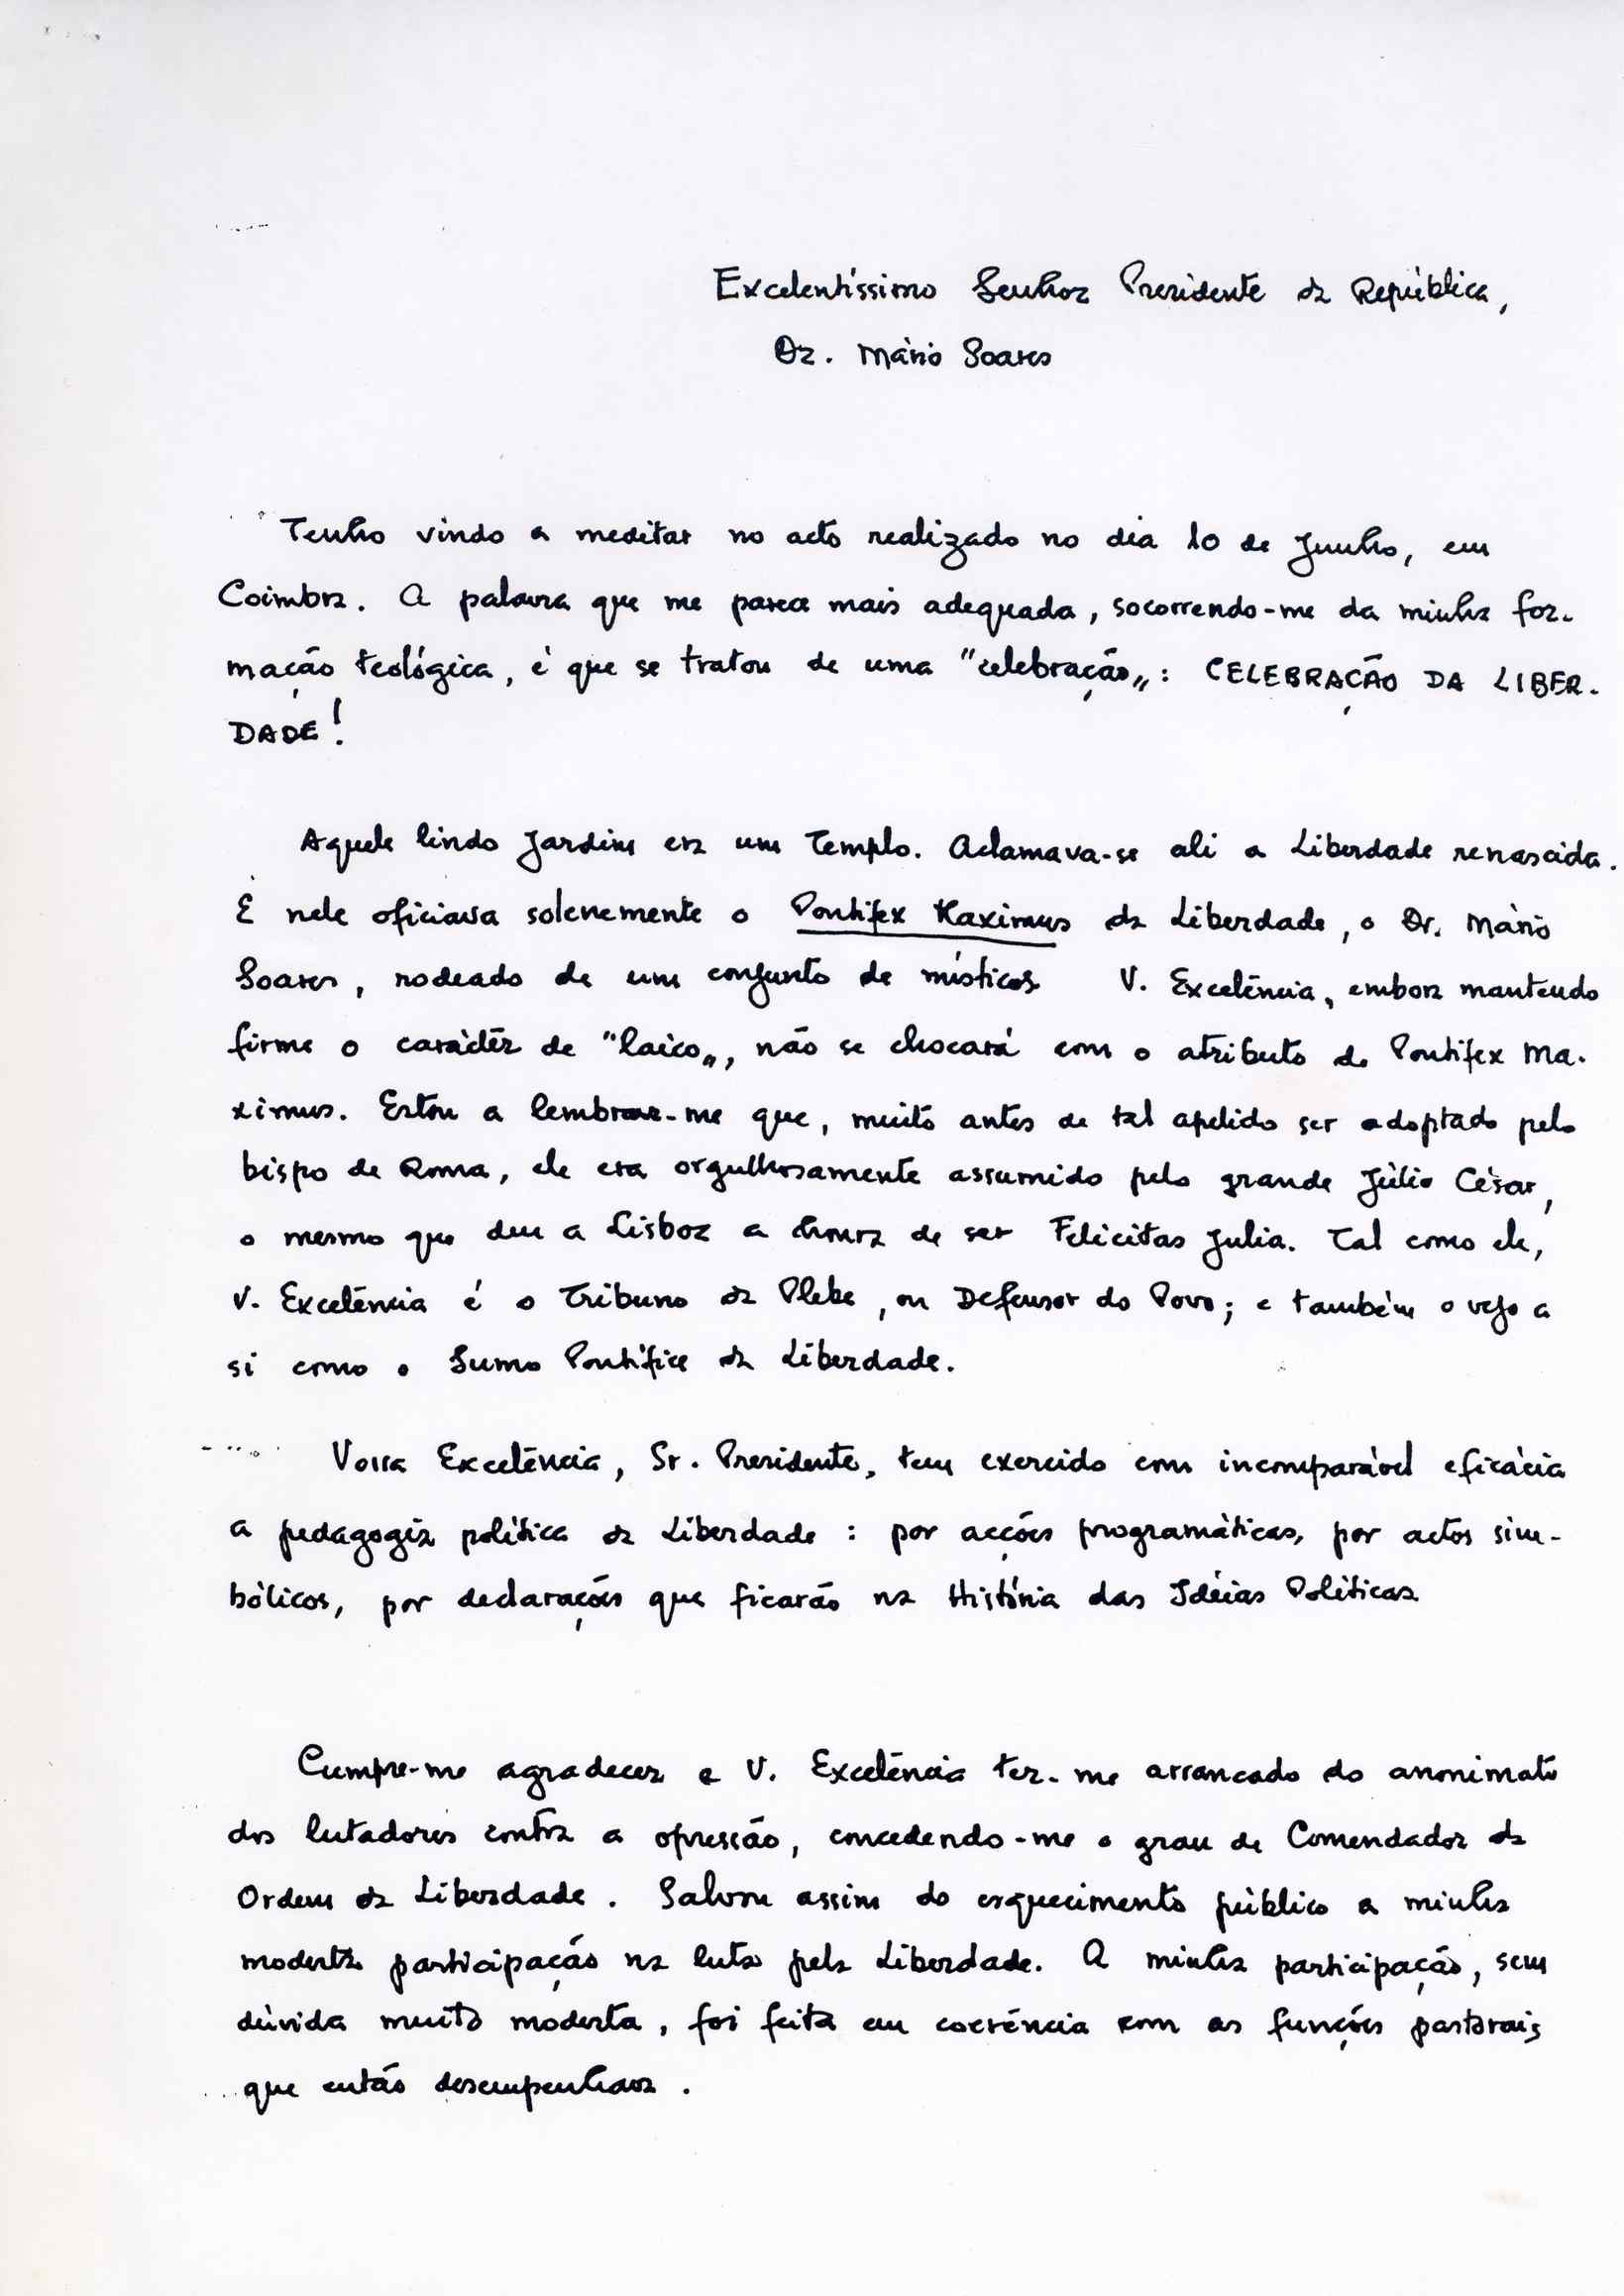 Excelentíssimo Senhor Presidente da República,
Dr. Mário Soares
Tenho vindo a meditar no acto realizado no dia 10 de Junho, em
Coimbra. A palavra que me parece mais adequada, socorrendo-me da minha for-
mação teológica, é que se tratou de uma "celebração„: CELEBRAÇÃO DA LIBER-
DADE!
Aquele lindo Jardim era um Templo. Aclamava-se ali a Liberdade renascida.
E nele oficiava solenemente o Pontifex Maximus da Liberdade, o Dr. Mário
Soares, rodeado de um conjunto de místicos V. Excelência, embora mantendo
firme o carácter de "laico„, não se chocará com o atributo de Pontifex Ma-
ximus. Estou a lembrar-me que, muito antes de tal apelido ser adoptado pelo
bispo de Roma, ele era orgulhosamente assumido pelo grande Júlio César,
o mesmo que deu a Lisboa a honra de ser Felicitas Julia. Tal como ele,
V. Excelência é o Tribuno da Plebe, ou Defensor do Povo; e também o vejo a
si como o Sumo Pontífice da Liberdade.
Vossa Excelência, Sr. Presidente, tem exercido com incomparável eficácia
a pedagogia política da Liberdade : por acções programáticas, por actos sim-
bólicos, por declarações que ficarão na História das Idéias Políticas
Cumpre-me agradecer a V. Excelência ter-me arrancado do anonimato
dos lutadores contra a opressão, concedendo-me o grau de Comendador da
Ordem da Liberdade. Salvou assim do esquecimento público a minha
modesta participação na luta pela Liberdade. A minha participação, sem
dúvida muito modesta, foi feita em coerência com as funções pastorais
que então desempenhava.